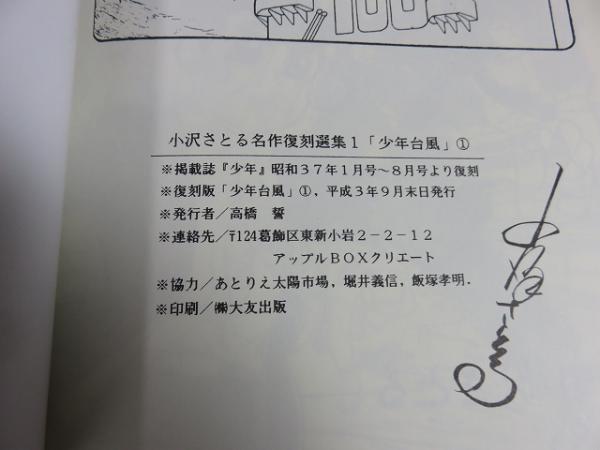 100
小沢さとる名作復刻選集1「少年台風」①
※掲載誌『少年』昭和37年1月号～8月号より復刻
※復刻版「少年台風」①，平成3年9月末日発行
※発行者／高橋　誓
※連絡先／〒124葛飾区東新小岩2－2－12
アップルBOXクリエート
※協力／あとりえ太陽市場，堀井義信，飯塚孝明．
※印刷／㈱大友出版
小沢さとる